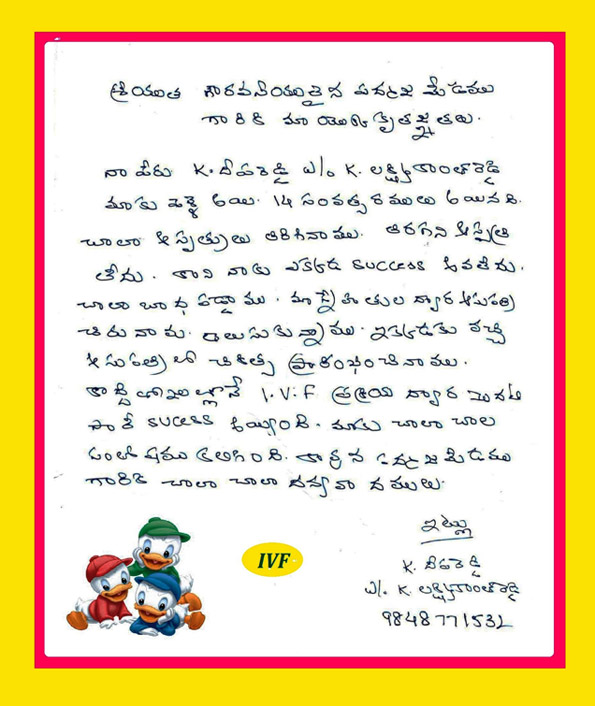 శ్రీయుత గౌరవనీయులైన పద్మజ మేడము
గారికి మా యొక్క కృతజ్ఞతలు.
నా పేరు K. దీపారెడ్డి W/o K. లక్ష్మీకాంతారెడ్డి
మాకు పెళ్ళి అయి 14 సంవత్సరములు అయినది.
చాలా ఆస్పత్రులు తిరిగినాము. తిరగని ఆస్పత్రి
లేదు. కాని నాకు ఎక్కడ success అవలేదు.
చాలా బాధ పడ్డాము. మా స్నేహితుల ద్వార ఆసుపత్రి
చిరునామ తెలుసుకున్నాము. ఇక్కడకు వచ్చి
ఆసుపత్రిలో చికిత్స ప్రారంభించినాము.
కొద్ది రోజుల్లోనే I.V.F ప్రక్రియ ద్వార మొదటి
సారే sucess అయ్యింది. మాకు చాలా చాల
సంతోషము కలిగింది. డాక్టర్ పద్మజ మేడము
గారికి చాలా చాలా ధన్యవాదములు.
ఇట్లు
K. దీపారెడ్డి
W/o. K. లక్ష్మీకాంతారెడ్డి
9848771532
IVF